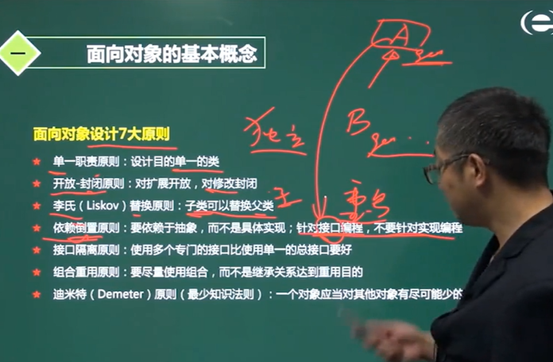 一 面向对象的基本概念
面向对象设计7大原则
★ 单一职责原则：设计目的单一的类
★ 开放-封闭原则：对扩展开放，对修改封闭
★ 李氏（Liskov）替换原则：子类可以替换父类
★ 依赖倒置原则：要依赖于抽象，而不是具体实现；针对接口编程，不要针对实现编程
★ 接口隔离原则：使用多个专门的接口比使用单一的总接口要好
★ 组合重用原则：要尽量使用组合，而不是继承关系达到重用目的
★ 迪米特（Demeter）原则（最少知识法则）：一个对象应当对其他对象有尽可能少的
A
B